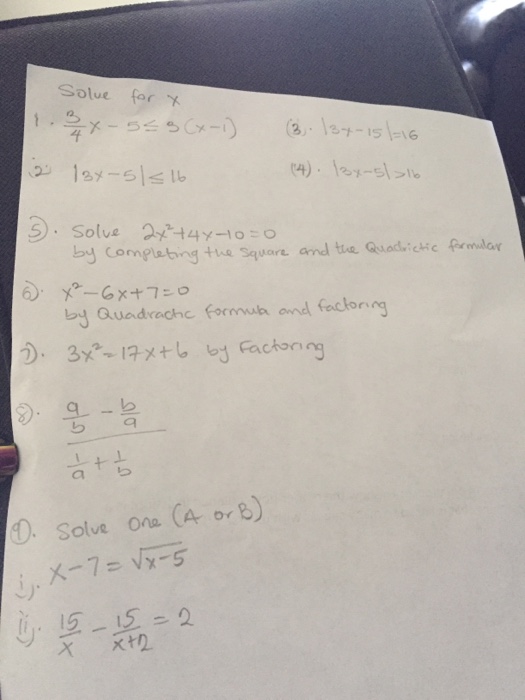 Solve for x
1. 3/4 x - 5 ≤ 3(x-1)
(3). |3x-15|=16
(2) |3x-5| ≤ 16
(4). |3x-5|>16
(5). Solve 2x²+4x-10=0
by completing the square and the Quadrictic formular
(6). x²-6x+7=0
by Quadractic formula and factoring
(7). 3x²-17x+6 by Factoring
(8). a/b - b/a
1/a + 1/b
(9). Solve One (A or B)
i). x-7 = √x-5
ii). 15/x - 15/x+2 = 2